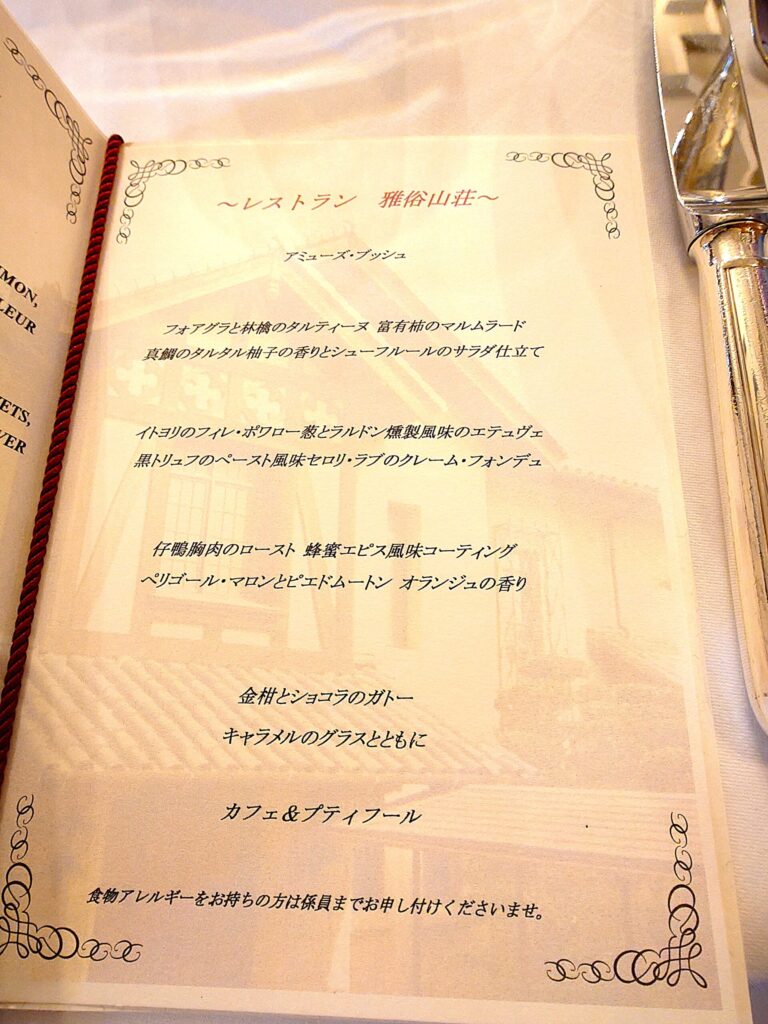 IMON,
LEUR
ETS,
VER
～レストラン　雅俗山荘～
アミューズ・ブッシュ
フォアグラと林檎のタルティーヌ 富有柿のマルムラード
真鯛のタルタル柚子の香りとシューフルールのサラダ仕立て
イトヨリのフィレ・ポワロー葱とラルドン燻製風味のエテュヴェ
黒トリュフのペースト風味セロリ・ラブのクレーム・フォンデュ
仔鴨胸肉のロースト 蜂蜜エピス風味コーティング
ペリゴール・マロンとピエドムートン オランジュの香り
金柑とショコラのガトー
キャラメルのグラスとともに
カフェ＆プティフール
食物アレルギーをお持ちの方は係員までお申し付けくださいませ。